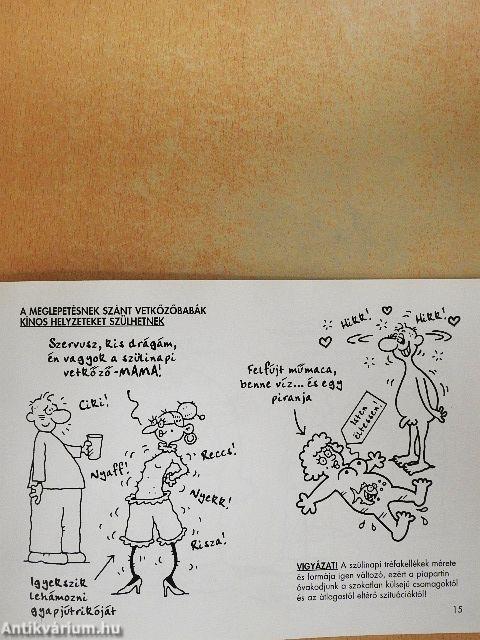 A MEGLEPETÉSNEK SZÁNT VETKŐZŐBABÁK
KÍNOS HELYZETEKET SZÜLHETNEK
Szervusz, kis drágám,
én vagyok a szülinapi
vetkőző-MAMA!
Ciki!
Nyaff!
Reccs!
Nyekk!
Risza!
Igyekszik
lehámozni
gyapjútrikóját
Hikk!
Hikk!
Felfújt műmaca,
benne víz... és egy
piranja
Isten
éltessen!
VIGYÁZAT! A szülinapi tréfakellékek mérete
és formája igen változó, ezért a piapartin
óvakodjunk a szokatlan külsejű csomagoktól
és az átlagostól eltérő szituációktól!
15
Antikvárium.hu